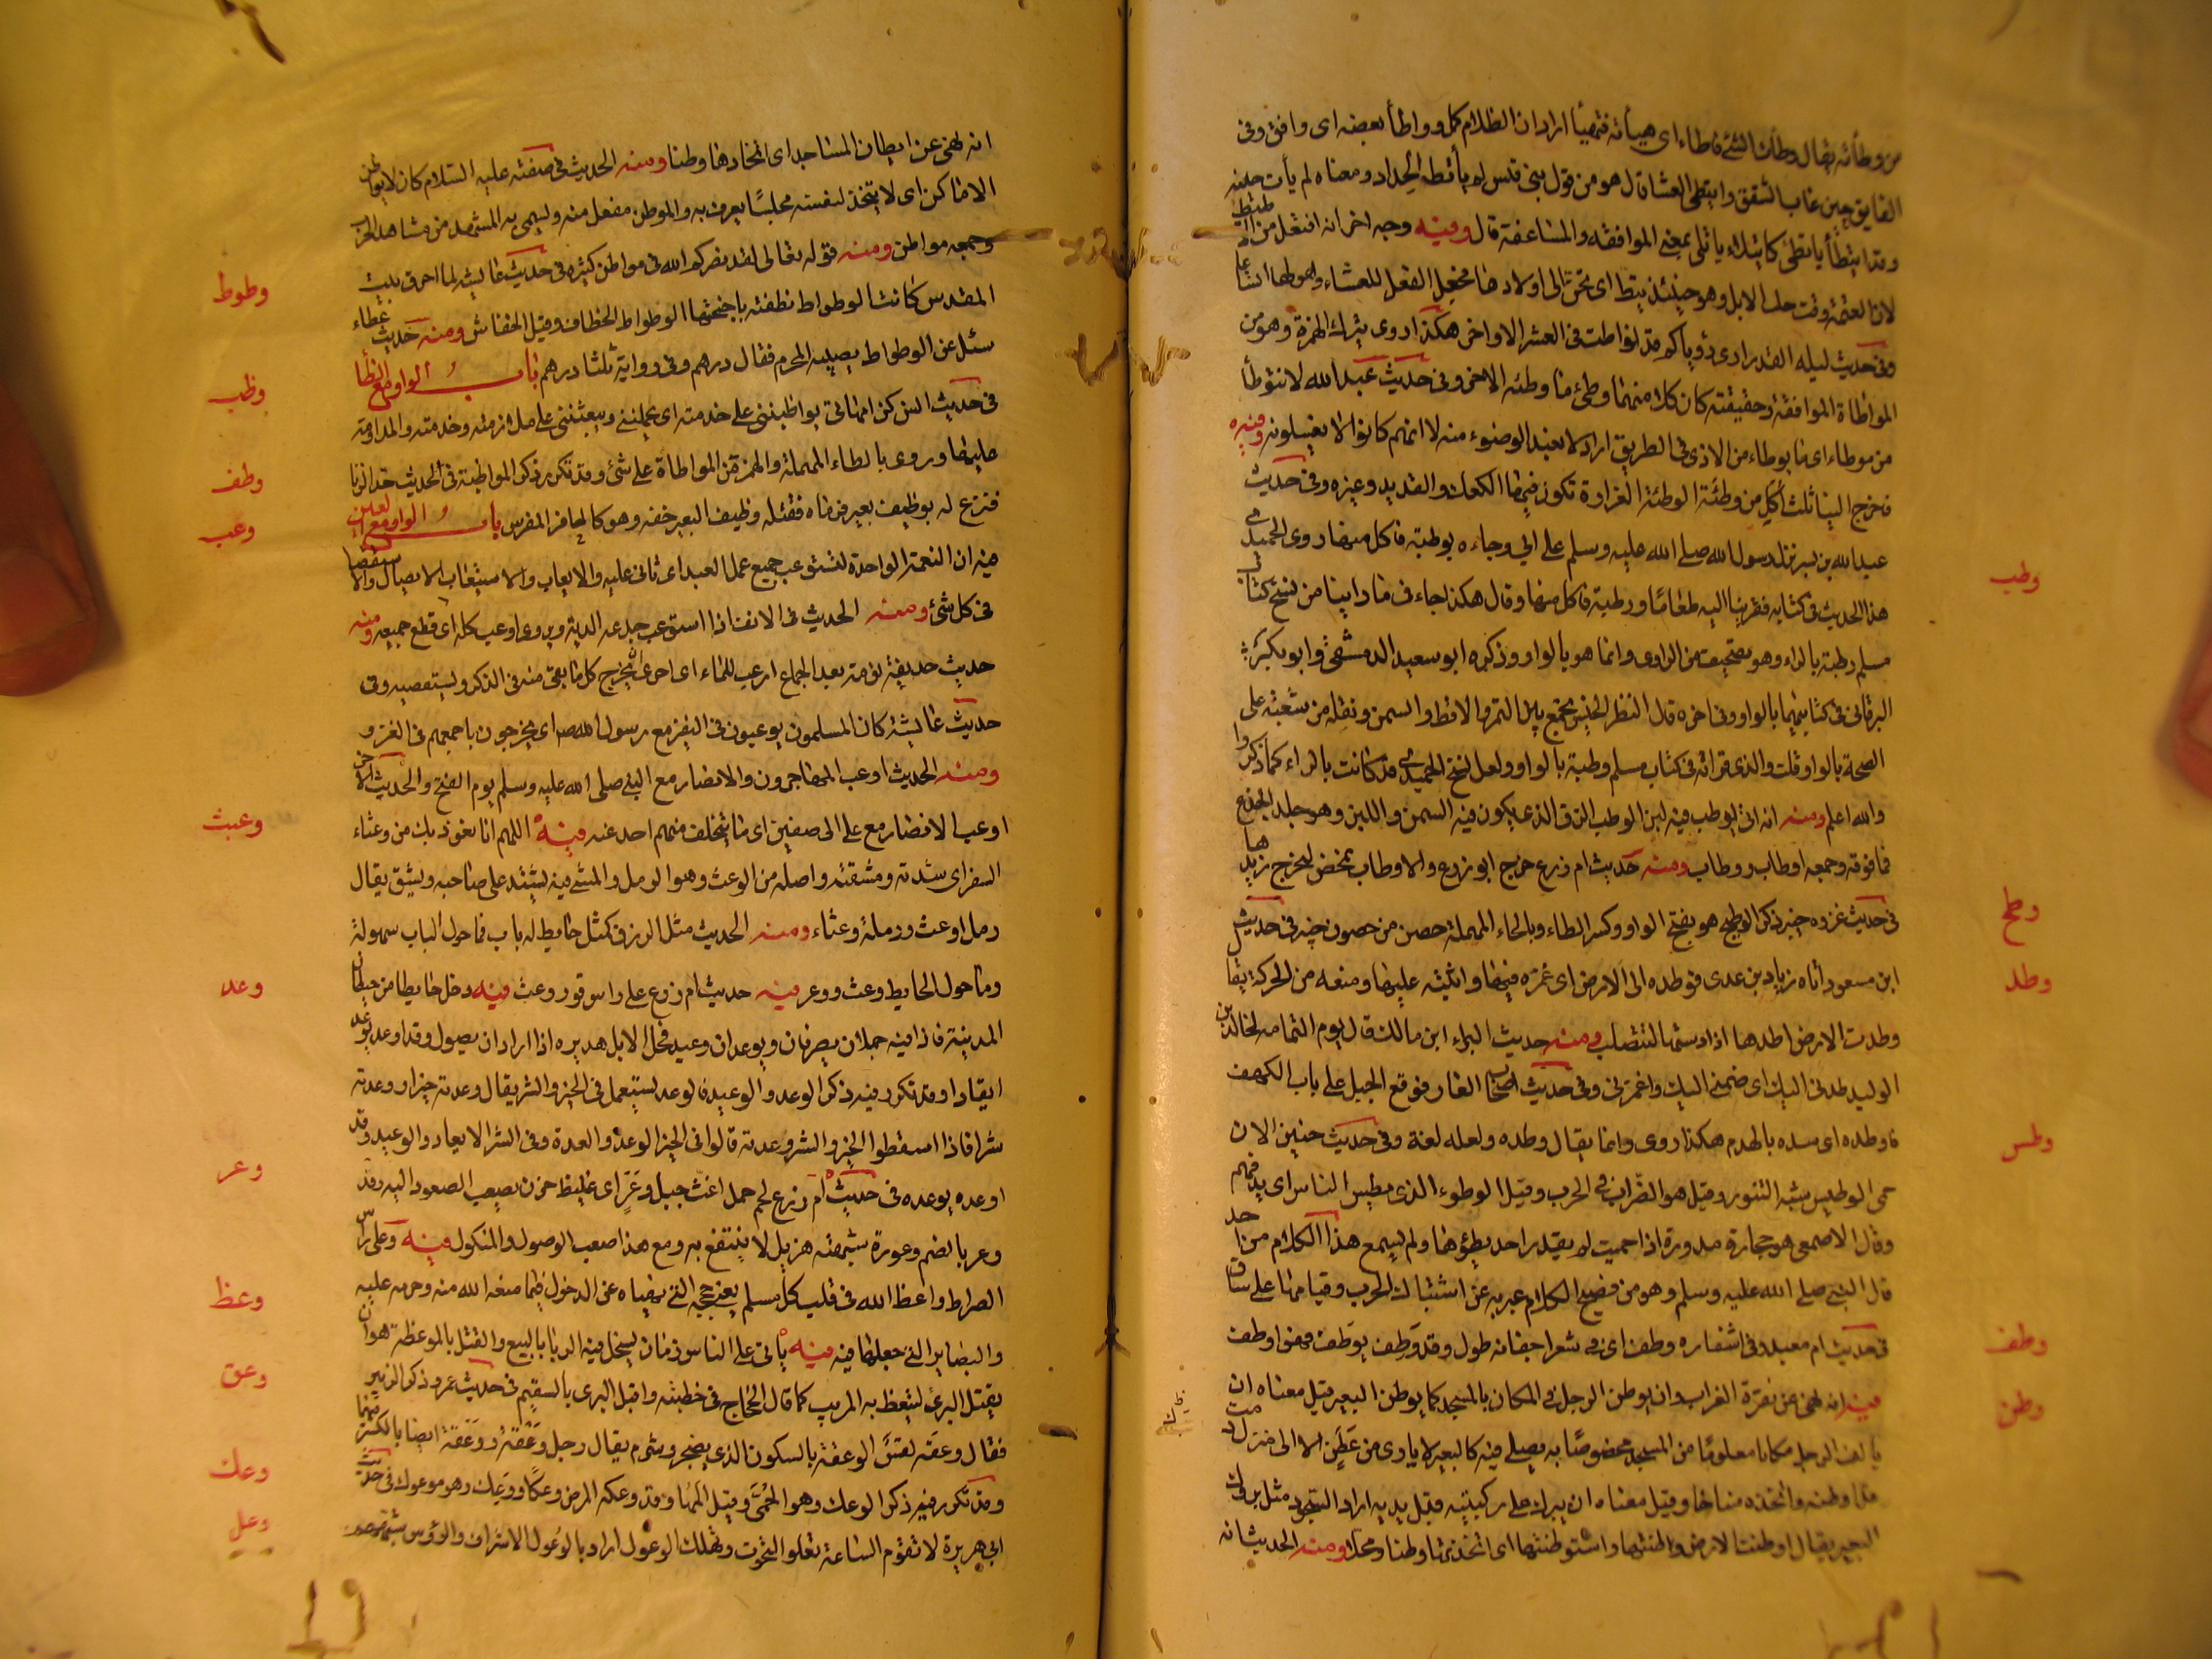 من وطأته يقال وطأت الشئ فاطاء اى هيأته فتهيأ اراد ان الظلام كمل وواطأ بعضه اى وافق وفى
الفايق حين غاب الشفق وايتطى العشا قال هو من قول بنى قيس لم يأتط الجداد ومعناه لم يأت حينه
وقد ايتطأ يأتطى كايتلا ياتلى بمعنى الموافقه والمساعفة قال وفيه وجه اخر انه افتعل من الا طيط
لان العتمة وقت حلب الابل وهو حينئذ يئط اى تحن الى اولادها فجعل الفعل للعشاء وهو لها اتساعا
وفى حديث ليله القدر ارى رؤياكم قد تواطت فى العشر الاواخر هكذا روى بترك الهمزة وهو من
المواطاة الموافقة وحقيقته كان كلا منهما وطئ ما وطئه الاخر وفى حديث عبد الله لا نتوضأ
من موطاء اى ما يوطاء من الاذى فى الطريق اراد لا نعيد الوضوء منه لا انهم كانوا لا يغسلونه وفيه
فاخرج الينا ثلث اكل من وطئة الوطئة الغرارة تكون فيها الكعك والقديد وغيره وفى حديث
وطب
عبد الله بن بسر نزل رسول الله صلى الله عليه وسلم على ابي وجاءه بوطبة فاكل منها روى الحميدى
هذا الحديث فى كتابه فقربنا اليه طعامًا ورطبة فاكل منها وقال هكذا جاء فيما راينا من نسخ كتاب
مسلم رطبة بالراء وهو تصحيف من الراوى وانما هو بالواو وذكره ابو سعيد الدمشقى وابو بكر
البرقانى فى كتابيهما بالواو وفى اخره قال النظر الحيس يجمع بين التمر والاقط والسمن ونقله من شعبة على
الصحة بالواو قلت والذى قراته فى كتاب مسلم وطبة بالواو ولعل نسخ الحميدى قد كانت بالراء كما ذكر
والله اعلم ومنه انه اتى بوطب فيه لبن الوطب الزق الذى يكون فيه السمن واللبن وهو جلد الجذع
فما فوقه وجمعه اوطاب ووطاب ومنه حديث ام زرع خرج ابو زرع والاوطاب تمخض ليخرج زبدها
وطح
فى حديث غزوه خيبر ذكر الوطيح هو بفتح الواو وكسر الطاء وبالحاء المهملة حصن من حصون خيبر فى حديث
وطد
ابن مسعود اتاه زياد بن عدى فوطده الى الارض اى غمزه فيها واثبته عليها ومنعه من الحركة يقال
وطدت الارض اطدها اذا دستها لتتصلب ومنه حديث البراء ابن مالك قال يوم اليمامه لخالد بن
الوليد طدنى اليك اى ضمنى اليك واغمزنى وفى حديث اصحاب الغار فوقع الجبل على باب الكهف
وطس
فاوطده اى سده بالهدم هكذا روى وانما يقال وطده ولعله لغة وفى حديث حنين الان
حمى الوطيس شبه التنور وقيل هو الضراب فى الحرب وقيل الوطوء الذى يطيس الناس اى يدقهم
وقال الاصمعى هو حجارة مدورة اذا حميت لم يقدر احد يطؤها ولم يسمع هذا الكلام من احد
قال النبى صلى الله عليه وسلم وهو من فصيح الكلام عبر به عن اشتباك الحرب وقيامها على ساق
وطف
فى حديث ام معبد وفى اشفاره وطف اى فى شعر اجفانه طول وقد وطف يوطف فهو اوطف
وطن
فيه انه نهى عن نقرة الغراب وان يوطن الرجل فى المكان بالمسجد كما يوطن البعير قيل معناه ان
يالف الرجل مكانا معلومًا من المسجد مخصوصًا به يصلى فيه كالبعير لا ياوى من عطن الا الى مبرك دمث
قد اوطنه واتخذه مناخا وقيل معناه ان يبرك على ركبتيه قبل يديه اراد السجود مثل بروك
البعير يقال اوطنت الارض ووطنتها واستوطنتها اى اتخذتها وطنا ومحلا ومنه الحديث انه
انه نهى عن ايطان المساجد اى اتخاذها وطنا ومنه الحديث فى صفته عليه السلام كان لا يوطن
الاماكن اى لا يتخذ لنفسه مجلسًا يعرف به والموطن مفعل منه ويسمى به المشهد من مشاهد الحرب
وجمعه مواطن ومنه قوله تعالى لقد نصركم الله فى مواطن كثيره فى حديث عايشه لما احرق بيت
وطوط
المقدس كانت الوطواط تطفئه باجنحتها الوطواط الخطاف وقيل الخفاش ومنه حديث عطاء
سئل عن الوطواط يصيبه المحرم فقال درهم وفى رواية ثلثا درهم باب الواو مع الظأ
وظب
فى حديث انس كن امهاتى يواظبننى على خدمته اى يحملننى ويبعثننى على ملازمته وخدمته والمداومة
عليها وروى بالطاء المهملة والهمز من المواطاة على شئ وقد تكرر ذكر المواظبة فى الحديث حد الزنا
وظف
فنزع له بوظيف بعير فرماه فقتله وظيف البعير خفه وهو كالحافر للفرس باب الواو مع العين
وعب
فيه ان النعمة الواحدة لتستوعب جميع عمل العبد اى تاتى عليه والايعاب والاستيعاب الايصال والاستقصا
فى كل شئ ومنه الحديث فى الانف اذا استوعب جدعه الدية ويروى اوعب كله اى قطع جميعه ومنه
حديث حذيفة نومة بعد الجماع اوعب للماء اى احرى ان يخرج كل ما بقى منه فى الذكر ويستقصيه وفى
حديث عايشة كان المسلمون يوعبون فى النفير مع رسول الله صلم اى يخرجون باجمعهم فى الغزو
ومنه الحديث اوعب المهاجرون والانصار مع النبى صلى الله عليه وسلم يوم الفتح والحديث الاخر
وعث
اوعب الانصار مع على الى صفين اى ما يتخلف منهم احد عنه فيه اللهم انا نعوذ بك من وعثاء
السفر اى شدته ومشقته واصله من الوعث وهو الرمل والمشى فيه يشتد على صاحبه ويشق يقال
رمل اوعث ورملة وعثاء ومنه الحديث مثل الرزق كمثل حايط له باب فما حول الباب سهولة
وعد
وما حول الحايط وعث ووعر فيه حديث ام زرع على راس قور وعث فيه دخل حايطا من حيطان
المدينة فاذا فيه جملان يصرفان ويوعدان وعيد فحل الابل هديره اذا اراد ان يصول وقد اوعد يوعد
ايعادا وقد تكرر فيه ذكر الوعد والوعيد فالوعد يستعمل فى الخير والشر يقال وعدته خيرا ووعدته
شرا فاذا اسقطوا الخير والشر وعدته قالوا فى الخير الوعد والعدة وفى الشر الايعاد والوعيد وقد
وعر
اوعده يوعده فى حديث ام زرع لحم جمل اغث جبل وعر اى غليظ حزن يصعب الصعود اليه وقد
وعر بالضم وعورة شبهته هزيل لا ينتفع به ومع هذا صعب الوصول والمنكول فيه وعلى راس
وعظ
الصراط واعظ الله فى قلب كل مسلم يعنى حججه التى تنهاه عن الدخول فيما منعه الله منه وحرمه عليه
والبصاير التى جعلها فيه فيه ياتى على الناس زمان يستحل فيه الربا بالبيع والقتل بالموعظة هو ان
وعق
يقتل البرئ ليتعظ به المريب كما قال الحجاج فى خطبته واقتل البرى بالسقيم فى حديث عمر وذكر الزبير
فقال وعقه لقس الوعقة بالسكون الذى يضجر ويتبرم يقال رجل وعقة ووعقة ايضا بالكسر فيهما
وعك
وقد تكرر فيه ذكر الوعك وهو الحمى وقيل المها وقد وعكه المرض وعكا ووعك وهو موعوك فى حديث
وعل
ابى هريرة لا تقوم الساعة تعلو التحوت وتهلك الوعول اراد بالوعول الاشراف والرؤس شبههم